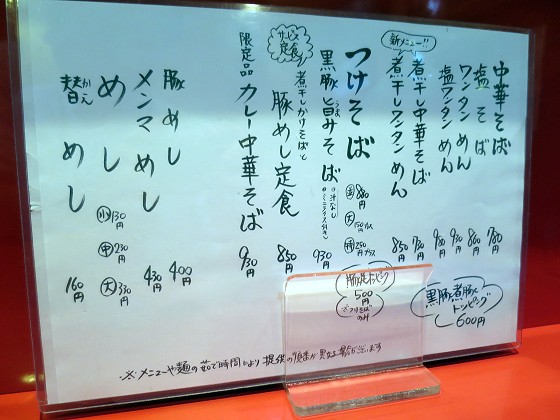 中華そば 780円
塩そば 780円
ワンタンめん 930円
塩ワンタンめん 930円
新メニュー!!
煮干し中華そば 730円
煮干しワンタンめん 850円
つけそば
並 880円
大 150円プラス
特 250円プラス
黒豚旨みそば 930円
うま
・汁なし
・ミニライス付き
サービス定食
煮干しかけそばと
豚めし定食 850円
限定品
カレー中華そば 930円
豚めし 400円
メンマめし 430円
めし
小 130円
中 230円
大 330円
替えめし 160円
かえ
トッピング
500円
黒豚煮豚
トッピング
600円
※メニューや麺の茹で時間により提供の順番が異なる場合がございます